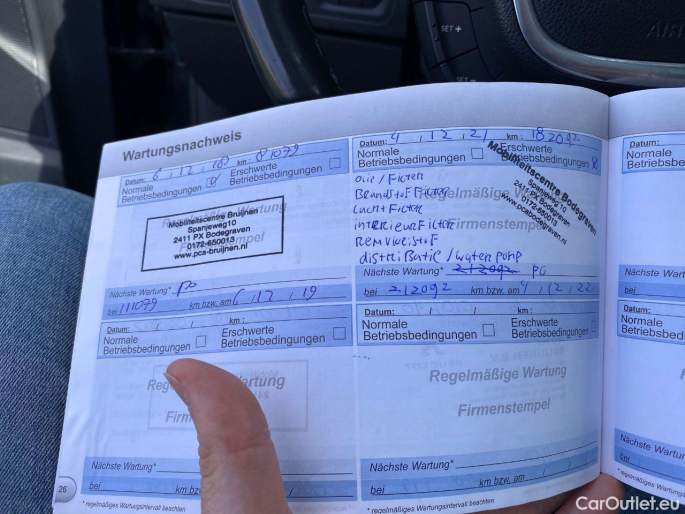 SET +
SET
AIR
Wartungsnachweis
Datum: 6 , 12 , 18 km: 81079
Normale Betriebsbedingungen
Erschwerte Betriebsbedingungen
Mobiliteitscentre Bruijnen
Spanjeweg10
2411 PX Bodegraven
0172-650013
www.pca-bruijnen.nl
Nächste Wartung* PO
bei 111079 km bzw. am 6 , 12 , 19
Datum: 4 , 12 , 21 km: 182092
Normale Betriebsbedingungen
Erschwerte Betriebsbedingungen
Regelmäßige Wartung
Firmenstempel
olie / Filter
Brandstof Filter
Lucht Filter
interieur Filter
Remvloeistof
distributie / waterpomp
Mobiliteitscentre Bodegraven
Spanjeweg10
2411 PX Bodegraven
0172-650013
www.pcabodegraven.nl
Nächste Wartung* 212092 PO
bei 212092 km bzw. am 4 , 12 , 22
Datum: km :
Normale Betriebsbedingungen
Erschwerte Betriebsbedingungen
Regelmäßige Wartung
Firmenstempel
Nächste Wartung*
bei km bzw. am
Datum: km :
Normale Betriebsbedingungen
Erschwerte Betriebsbedingungen
Regelmäßige Wartung
Firmenstempel
Nächste Wartung*
bei km bzw. am
26
* regelmäßiges Wartungsintervall beachten
* regelmäßiges Wartungsintervall beachten
Datum:
Normale
Betriebsbedingung
Nächste Wartung
bei
Datum:
Normale
Betriebsbeding
Nächste Wartung
bei
* regelmäßiges Wartungs
CarOutlet.eu